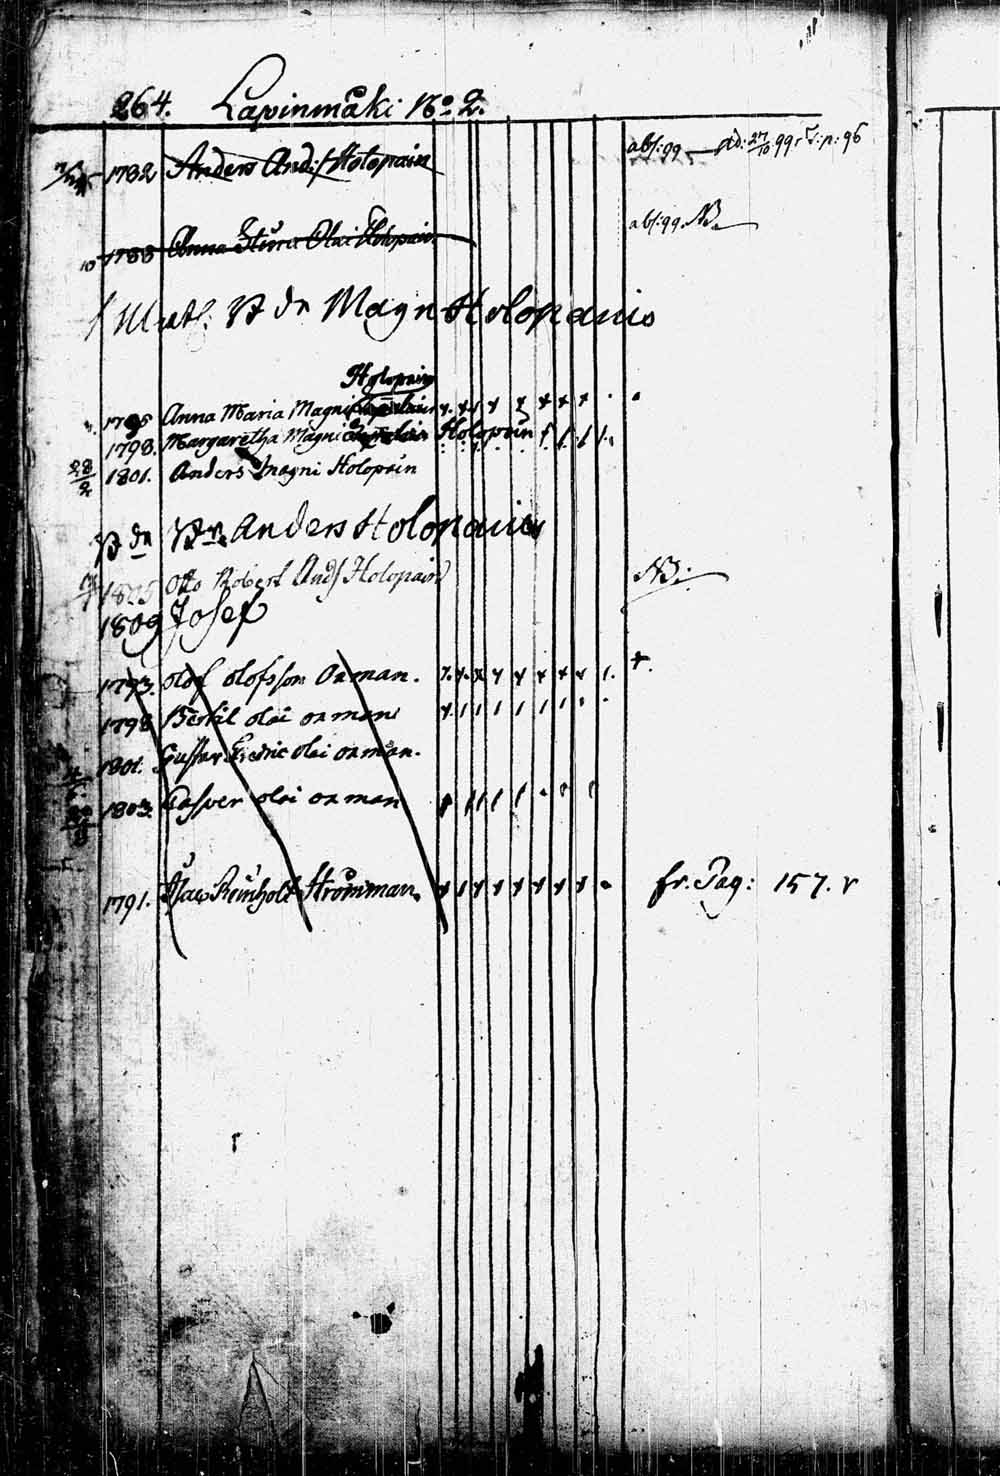 264. Lapinmäki No 2.
1782 Anders And:s Holopain abs:99 — ad: 27/10 99 r p: 96
10 1788 Anna Stina Olai Holopain abs:99. NB
Matts: Magn Holopainis
Holopain
1795 Anna Maria Magni
1798. Margaretha Magni Holopain
28/2 1801. Anders Magni Holopain
Anders Holopainis
1805 Otto Robert And:s Holopain NB:
1809 Josef
1793. Olof Olofsson Oxman.
1798 Bertil Olai Oxman
1801. Gustav Fredric Olai Oxman.
1803. Casper Olai Oxman
1791. Isac Reinholt Strömman. fr. Pag: 157. r